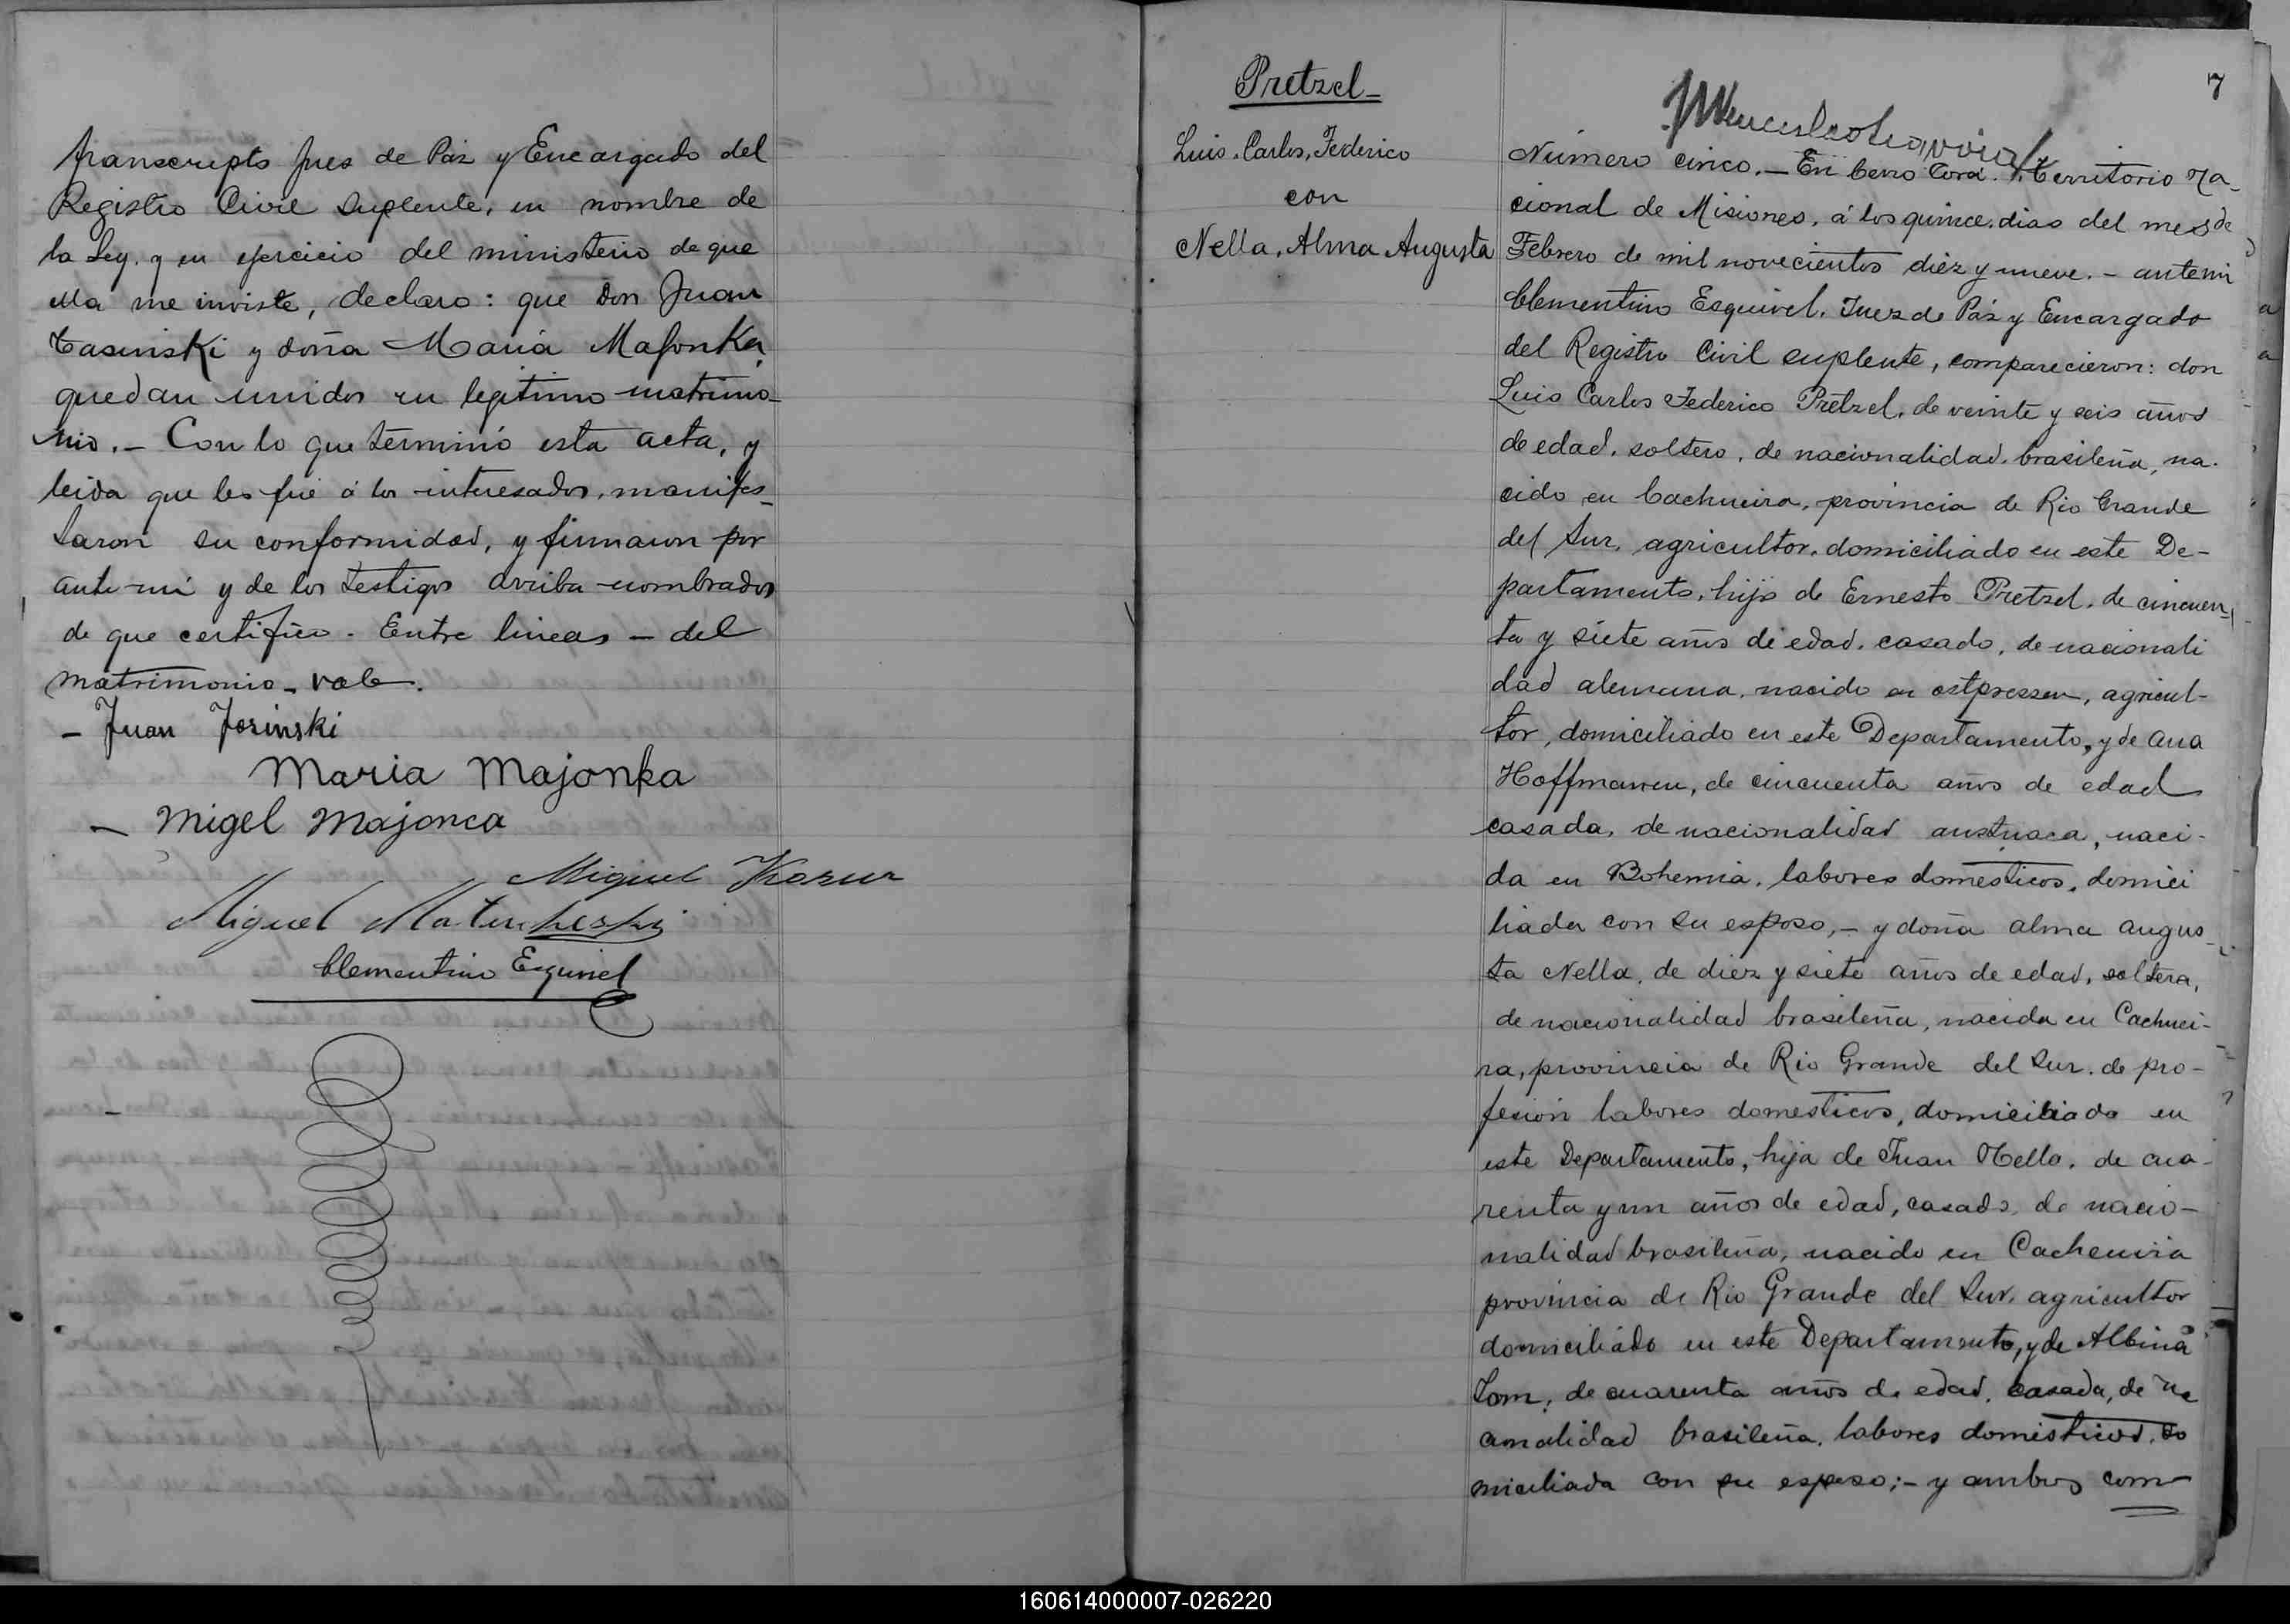 transcripto Jues de Paz y Encargado del
Registro Civil Suplente, en nombre de
la Ley, y en ejercicio del ministerio de que
ella me inviste, declaro: que Don Juan
Casinski y doña Maria Majonka,
quedan unidos en legitimo matrimo-
nio.- Con lo que terminó esta acta, y
leida que les fué á los interesados, manifes-
taron su conformidad, y firmaron por
ante-mi y de los testigos arriba nombrados
de que certifico. Entre lineas - del
matrimonio - vale.
- Juan Josinski
Maria Majonka
- Migel Majonca
Miguel Kozur
Miguel
Clementino Esquivel
7
Pretzel-
Luis, Carlos, Federico
con
Nella, Alma Augusta
Número cinco.- En Cerro Corá. Territorio Na-
cional de Misiones, á los quince dias del mes de
Febrero de mil novecientos diez y nueve.- ante mi
Clementino Esquivel. Juez de Páz y Encargado
del Registro Civil suplente, comparecieron: don
Luis Carlos Federico Pretzel, de veinte y seis años
de edad, soltero, de nacionalidad brasileña, na-
cido en Cachueira, provincia de Rio Grande
del Sur, agricultor, domiciliado en este De-
partamento, hijo de Ernesto Pretzel, de cincuen-
ta y siete años de edad, casado, de nacionali
dad alemana, nacido en ostpressen, agricul-
tor, domiciliado en este Departamento, y de Ana
Hoffmannn, de cincuenta años de edad
casada, de nacionalidad austriaca, naci-
da en Bohemia, labores domésticos, domici
liada con su esposo,- y doña alma augus-
ta Nella, de diez y siete años de edad, soltera,
de nacionalidad brasileña, nacida en Cachuei-
ra, provincia de Rio Grande del Sur, de pro-
fesión labores domesticos, domiciliada en
este Departamento, hija de Juan Nella, de cua-
renta y un años de edad, casado, de nacio-
nalidad brasileña, nacido en Cacheuira
provincia de Rio Grande del Sur, agricultor
domiciliado en este Departamento, y de Albina
Tom, de cuarenta años de edad, casada, de na
cionalidad brasileña, labores domésticos, do
miciliada con su esposo;- y ambos com
160614000007-026220